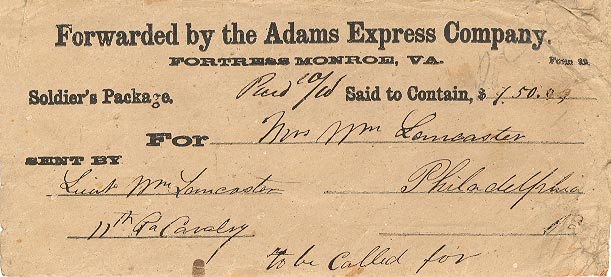 Forwarded by the Adams Express Company.
FORTRESS MONROE, VA. Form 22
Soldier's Package. Paid Said to Contain, $ 150.00
For Mrs Wm Lancaster
SENT BY
Lieut Wm Lancaster Philadelphia
11th Pa Cavalry
to be called for